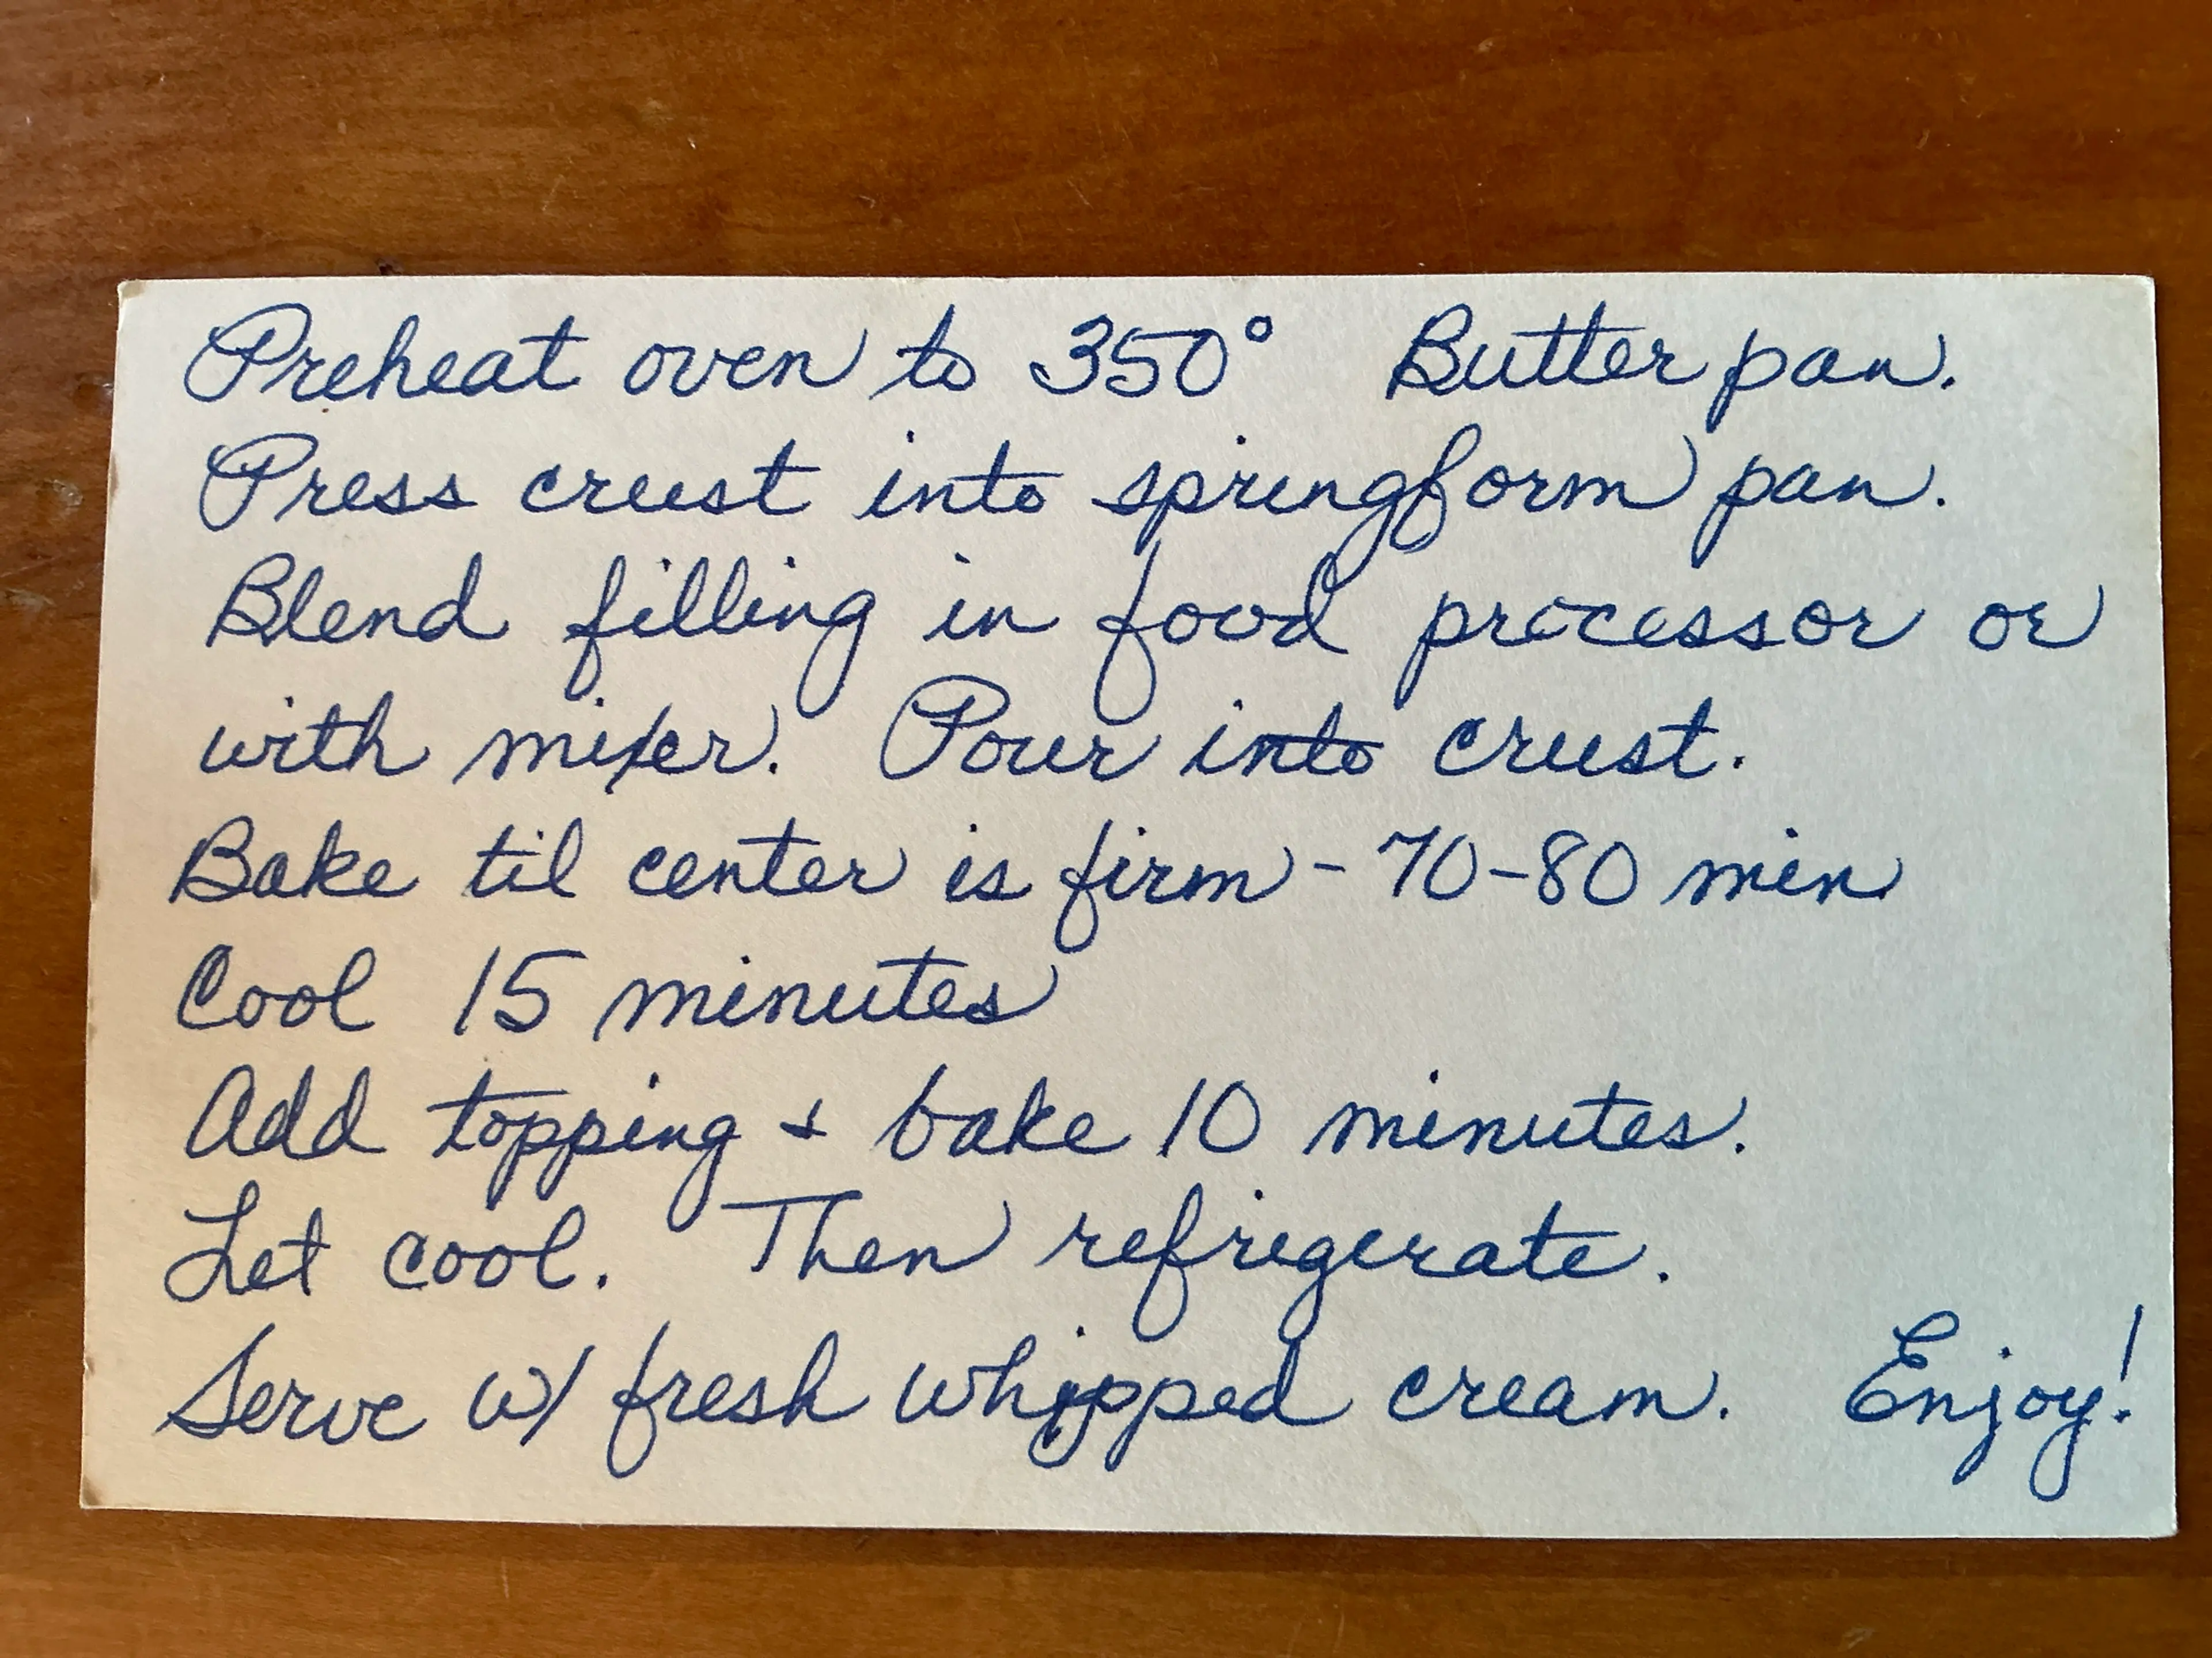 Preheat oven to 350° Butter pan.
Press crust into springform pan.
Blend filling in food processor or
with mixer. Pour into crust.
Bake til center is firm - 70-80 min
Cool 15 minutes
Add topping + bake 10 minutes.
Let cool. Then refrigerate.
Serve w/ fresh whipped cream. Enjoy!